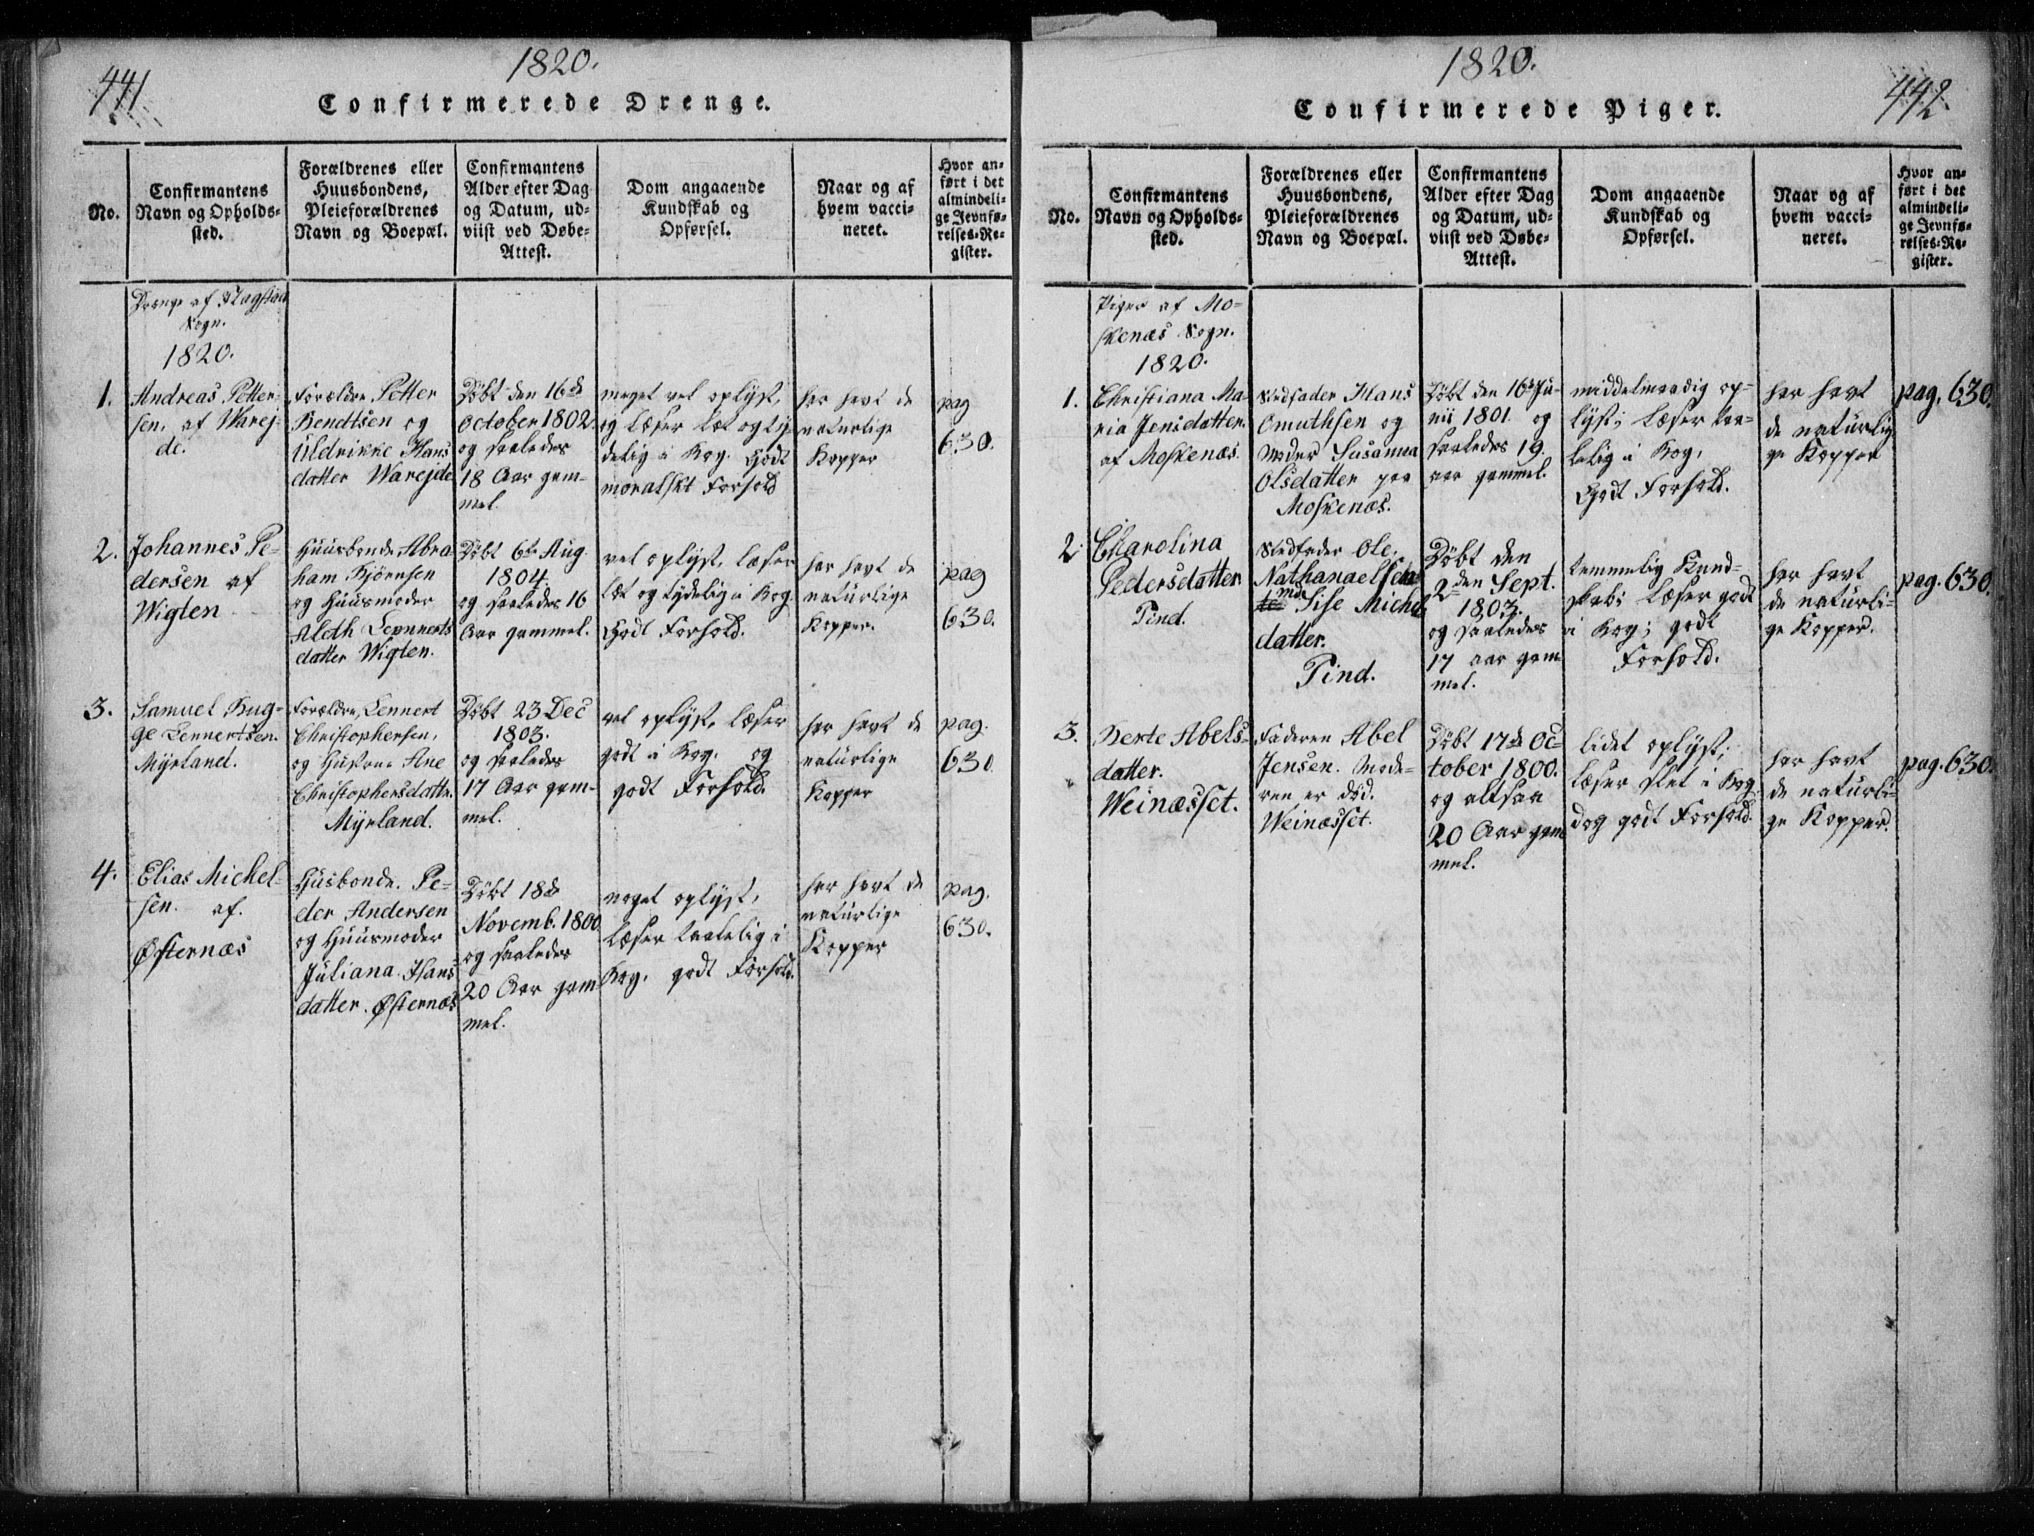 441
1820.
Confirmerede Drenge.
No.
Confirmantens
Navn og Opholds-
sted.
Forældrenes eller
Huusbondens,
Pleieforældrenes
Navn og Boepæl.
Confirmantens
Alder efter Dag
og Datum, ud-
viist ved Døbe-
Attest.
Dom angaaende
Kundskab og
Opførsel.
Naar og af
hvem vacci-
neret.
Hvor an-
ført i det
almindeli-
ge Jevnfø-
relses-Re-
gister.
Drenge af Flagstad
Sogn.
1820.
1.
Andreas Petter-
sen, af Warej-
de.
Forældre Petter
Bendtsen og
Uldrikke Hans
datter Warejde
Døbt den 16de
October 1802.
og saaledes
18 Aar gam-
mel.
meget vel oplyst,
og læser let og ty-
delig i Bog. Godt
moralskt Forhold
har havt de
naturlige
Kopper
pag
630.
2.
Johannes Pe-
dersen af
Wigten
Huusbonde Abra-
ham Bjørnsen
og Huusmoder
Aleth Lennerts
datter Wigten.
Døbt 6te Aug.
1804.
og saaledes 16
Aar gammel.
vel oplyst, læser
let og tydelig i Bog
Godt Forhold.
har havt de
naturlige
Kopper.
pag
630.
3.
Samuel Bug-
ge Lennertsen.
Myrland.
Forældre, Lennert
Christophersen,
og Hustrue Ane
Christophersdatter.
Myrland.
Døbt 23 Dec
1803.
og saaledes
17 Aar gam-
mel.
vel oplyst, læser
godt i Bog. og
godt Forhold.
har havt de
naturlige
Kopper
pag.
630.
4.
Elias Michel-
sen. af.
Østernæs
Husbonde. Pe-
der Andersen
og Huusmoder
Juliana Hans
datter. Østernæs
Døbt 18de
Novemb. 1800
og saaledes
20 Aar gam-
mel.
noget oplyst,
læser taalelig i
Bog, godt Forhold.
har havt de
naturlige
Kopper
pag.
630.
1820.
442
Confirmerede Piger.
No.
Confirmantens
Navn og Opholds-
sted.
Forældrenes eller
Huusbondens,
Pleieforældrenes
Navn og Boepæl.
Confirmantens
Alder efter Dag
og Datum, ud-
viist ved Døbe-
Attest.
Dom angaaende
Kundskab og
Opførsel.
Naar og af
hvem vacci-
neret.
Hvor an-
ført i det
almindeli-
ge Jevnfø-
relses-Re-
gister.
Piger af Mo-
skenæs Sogn.
1820.
1.
Christiana Ma-
ria Jensdatter.
af Moskenæs.
Stedfader Hans
Omuthsen og
Moder Susanna
Olsdatter paa
Moskenæs.
Døbt den 16de Ju-
nii 1801. og
saaledes 19.
aar gammel.
middelmaadig op-
lyst; læser taa-
lelig i Bog,
Godt Forhold.
har havt
de naturlig
ge Kopper
pag. 630.
2.
Charolina
Pedersdatter
Tind.
Stedfader Ole
Nathanaelsen
Mod Sise Michels
datter.
Tind.
Døbt den
2den Sept.
1803.
og saaledes
17 aar gam-
mel.
temmelig Kund-
skab; læser godt
i Bog; godt
Forhold.
har havt
de naturli-
ge Kopper.
pag. 630.
3.
Berte Abels-
datter.
Weinæsset.
Faderen Abel
Jensen. Mode-
ren er død.
Weinæsset.
Døbt 17de Oc-
tober 1800.
og altsaa
20 Aar gam
mel.
lidet oplyst;
læser slet i Bog
dog godt Forhold.
har havt
de naturli-
ge Kopper.
pag. 630.